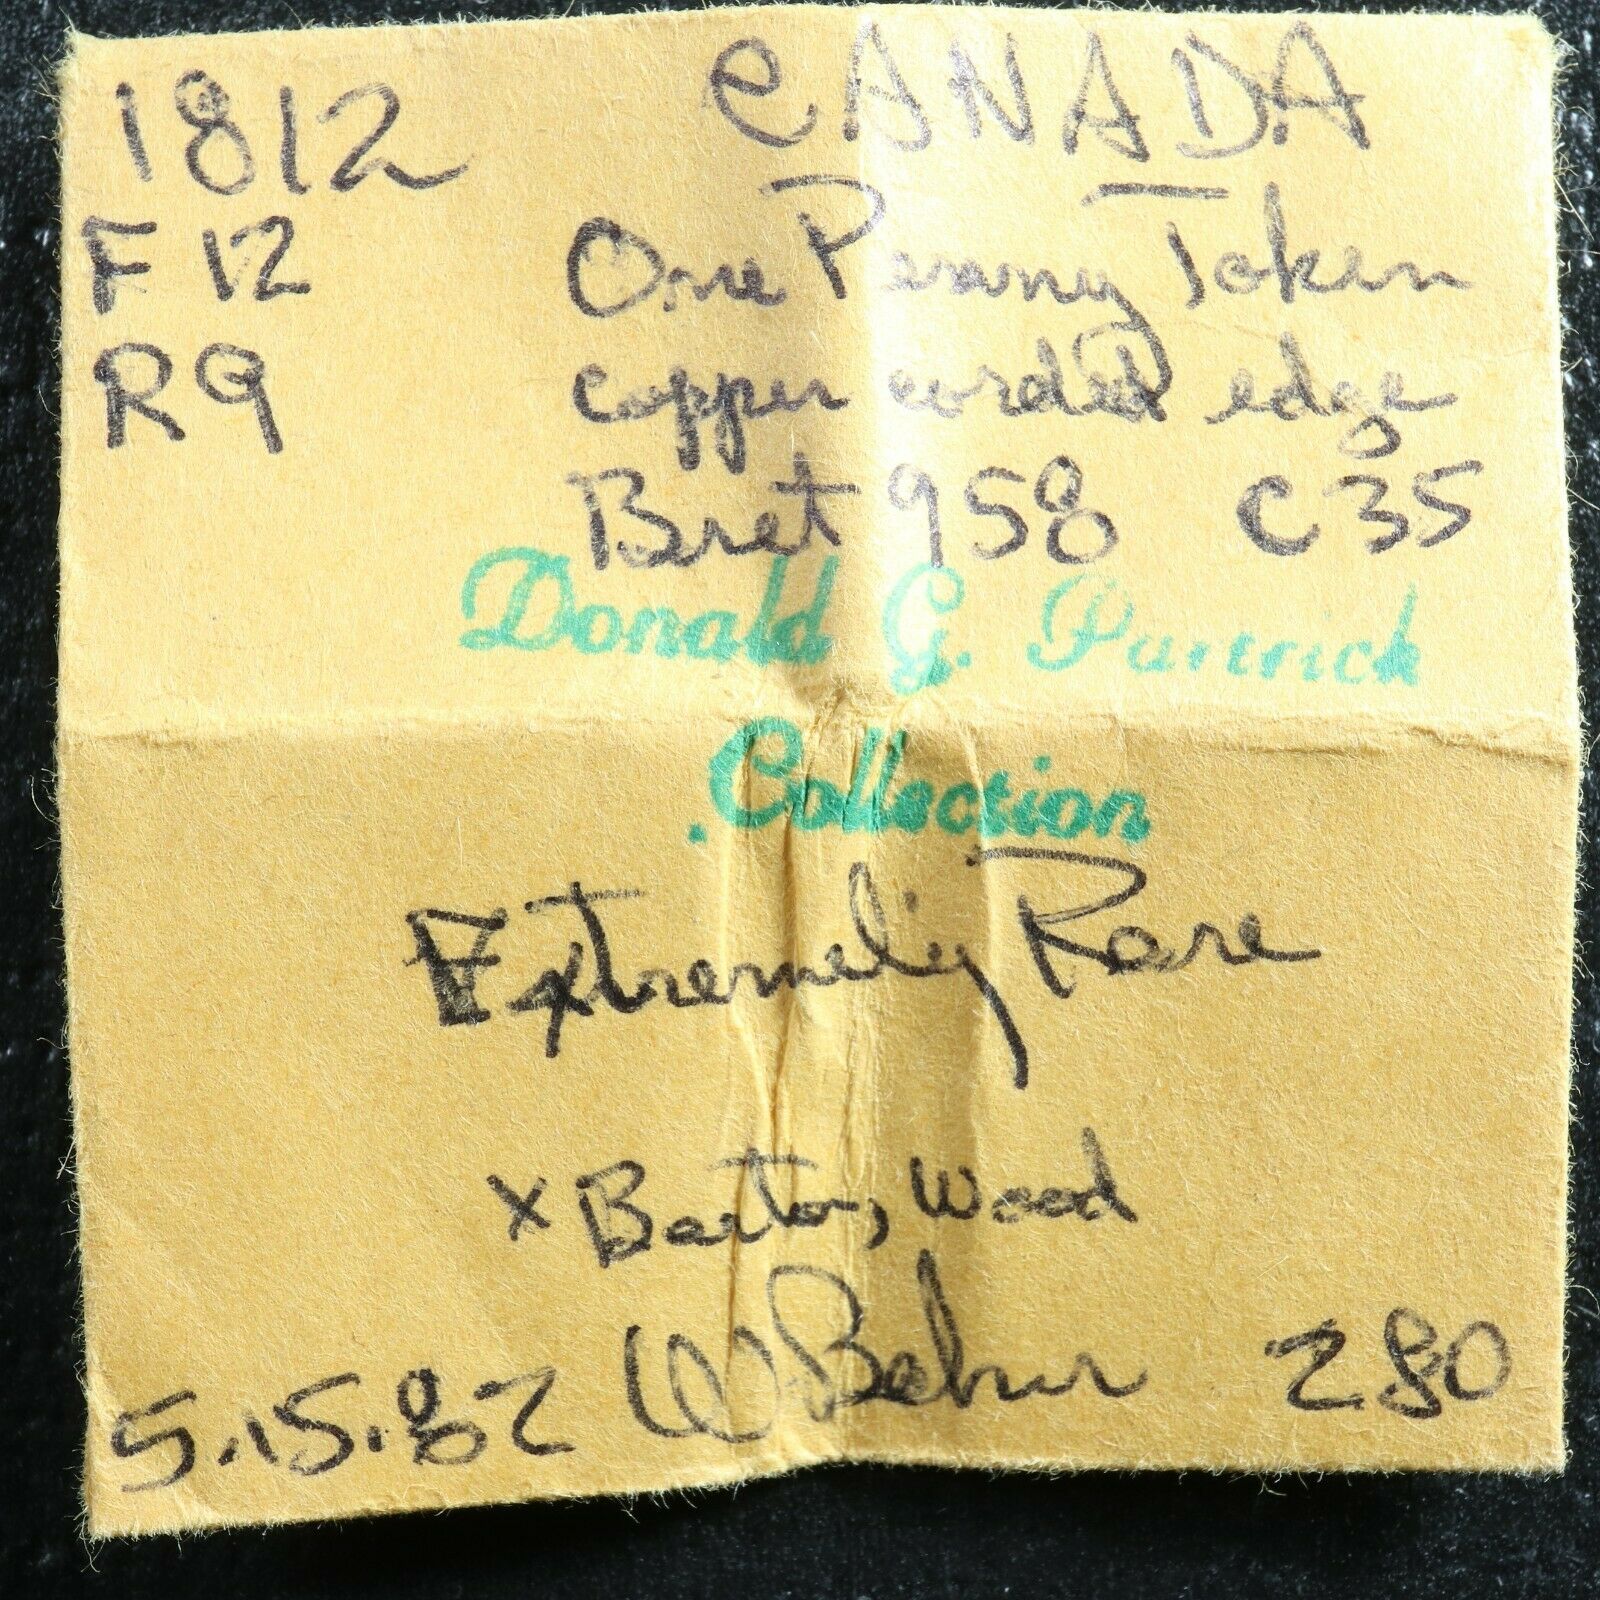 1812 CANADA
F 12 One Penny Token
R9 copper corded edge
Bret 958 C 35
Donald G. Partrick
Collection
Extremely Rare
x Barton, Wood
5.15.82 W 280